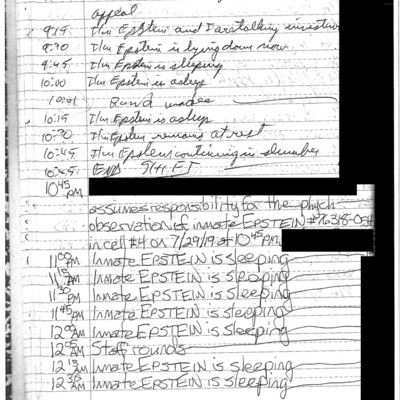 appeal
9:15 I/m Epstein and I are talking investm
9:30 I/m Epstein is lying down now
9:45 I/m Epstein is sleeping
10:00 I/m Epstein is asleep
10:01 Round made
10:15 I/m Epstein is asleep
10:30 I/m Epstein remains at rest
10:45 I/m Epstein continuing in slumber
10:45 END SHIFT
10:45 PM
assumes responsibility for the phych
observation of inmate EPSTEIN #76318-054
in cell #4 on 7/29/19 at 10:45 PM.
11:00 PM Inmate EPSTEIN is sleeping
11:15 PM Inmate EPSTEIN is sleeping
11:30 PM Inmate EPSTEIN is sleeping
11:45 PM Inmate EPSTEIN is sleeping
12:00 AM Inmate EPSTEIN is sleeping
12:05 AM Staff rounds
12:15 AM Inmate EPSTEIN is sleeping
12:30 AM Inmate EPSTEIN is sleeping